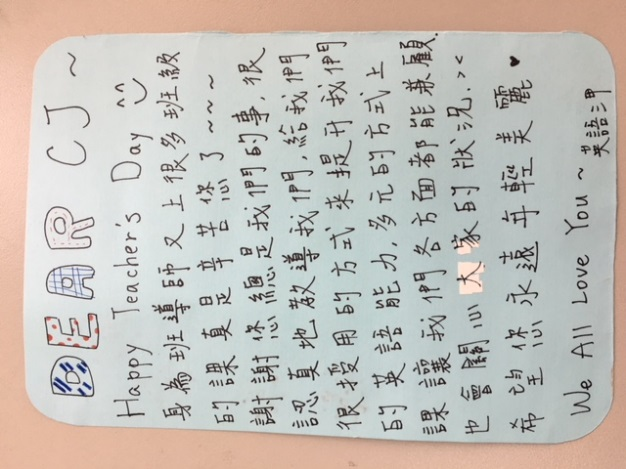 DEAR CJ ~
Happy Teacher's Day ^^
身為班導師又上很多班級
的課真是辛苦您了~~~
謝謝您總是我們的事,很
認真地教導我們,給我們
很授用的方式來提升我們
的英語能力,多元的方式上
課讓我們各方面都能兼顧.
也會關心大家的狀況.><
希望您永遠年輕美麗♥
We All Love You~
英語二甲